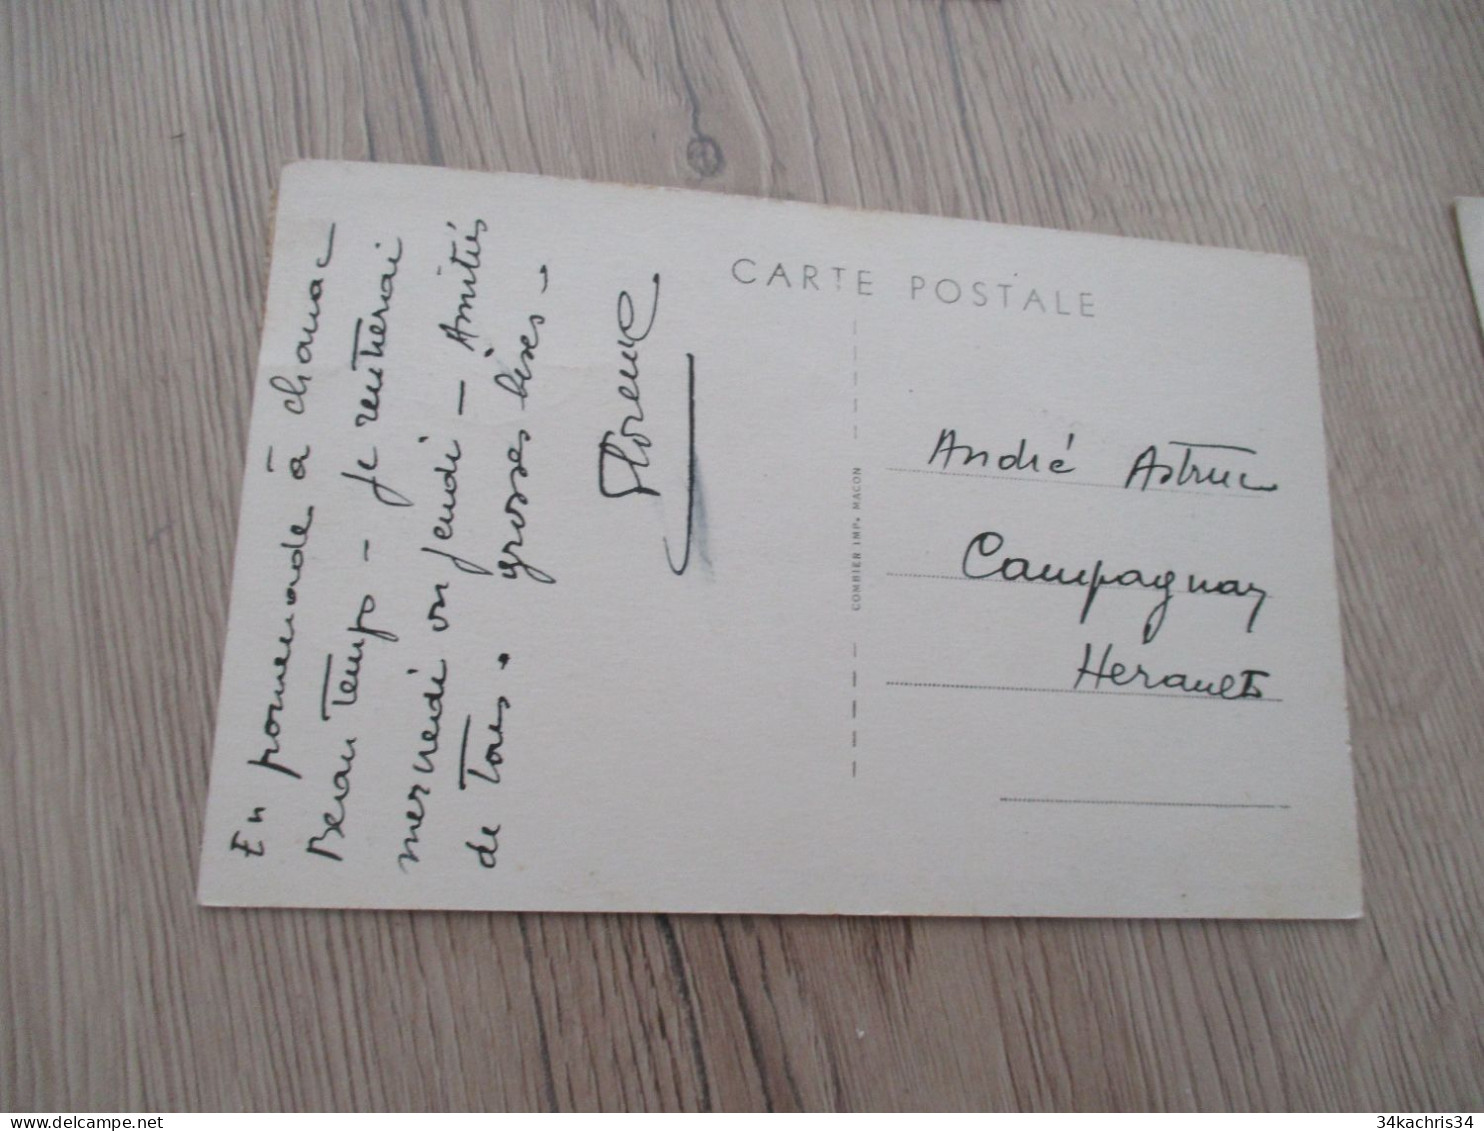 En promenade à chanac
Beau Temps - je rentrerai
mercredi ou jeudi - Amitiés
de Tous. grosses bises -
Florence
CARTE POSTALE
COMBIER IMP. MACON
André Astruc
Campagnan
Herault
34kachris34